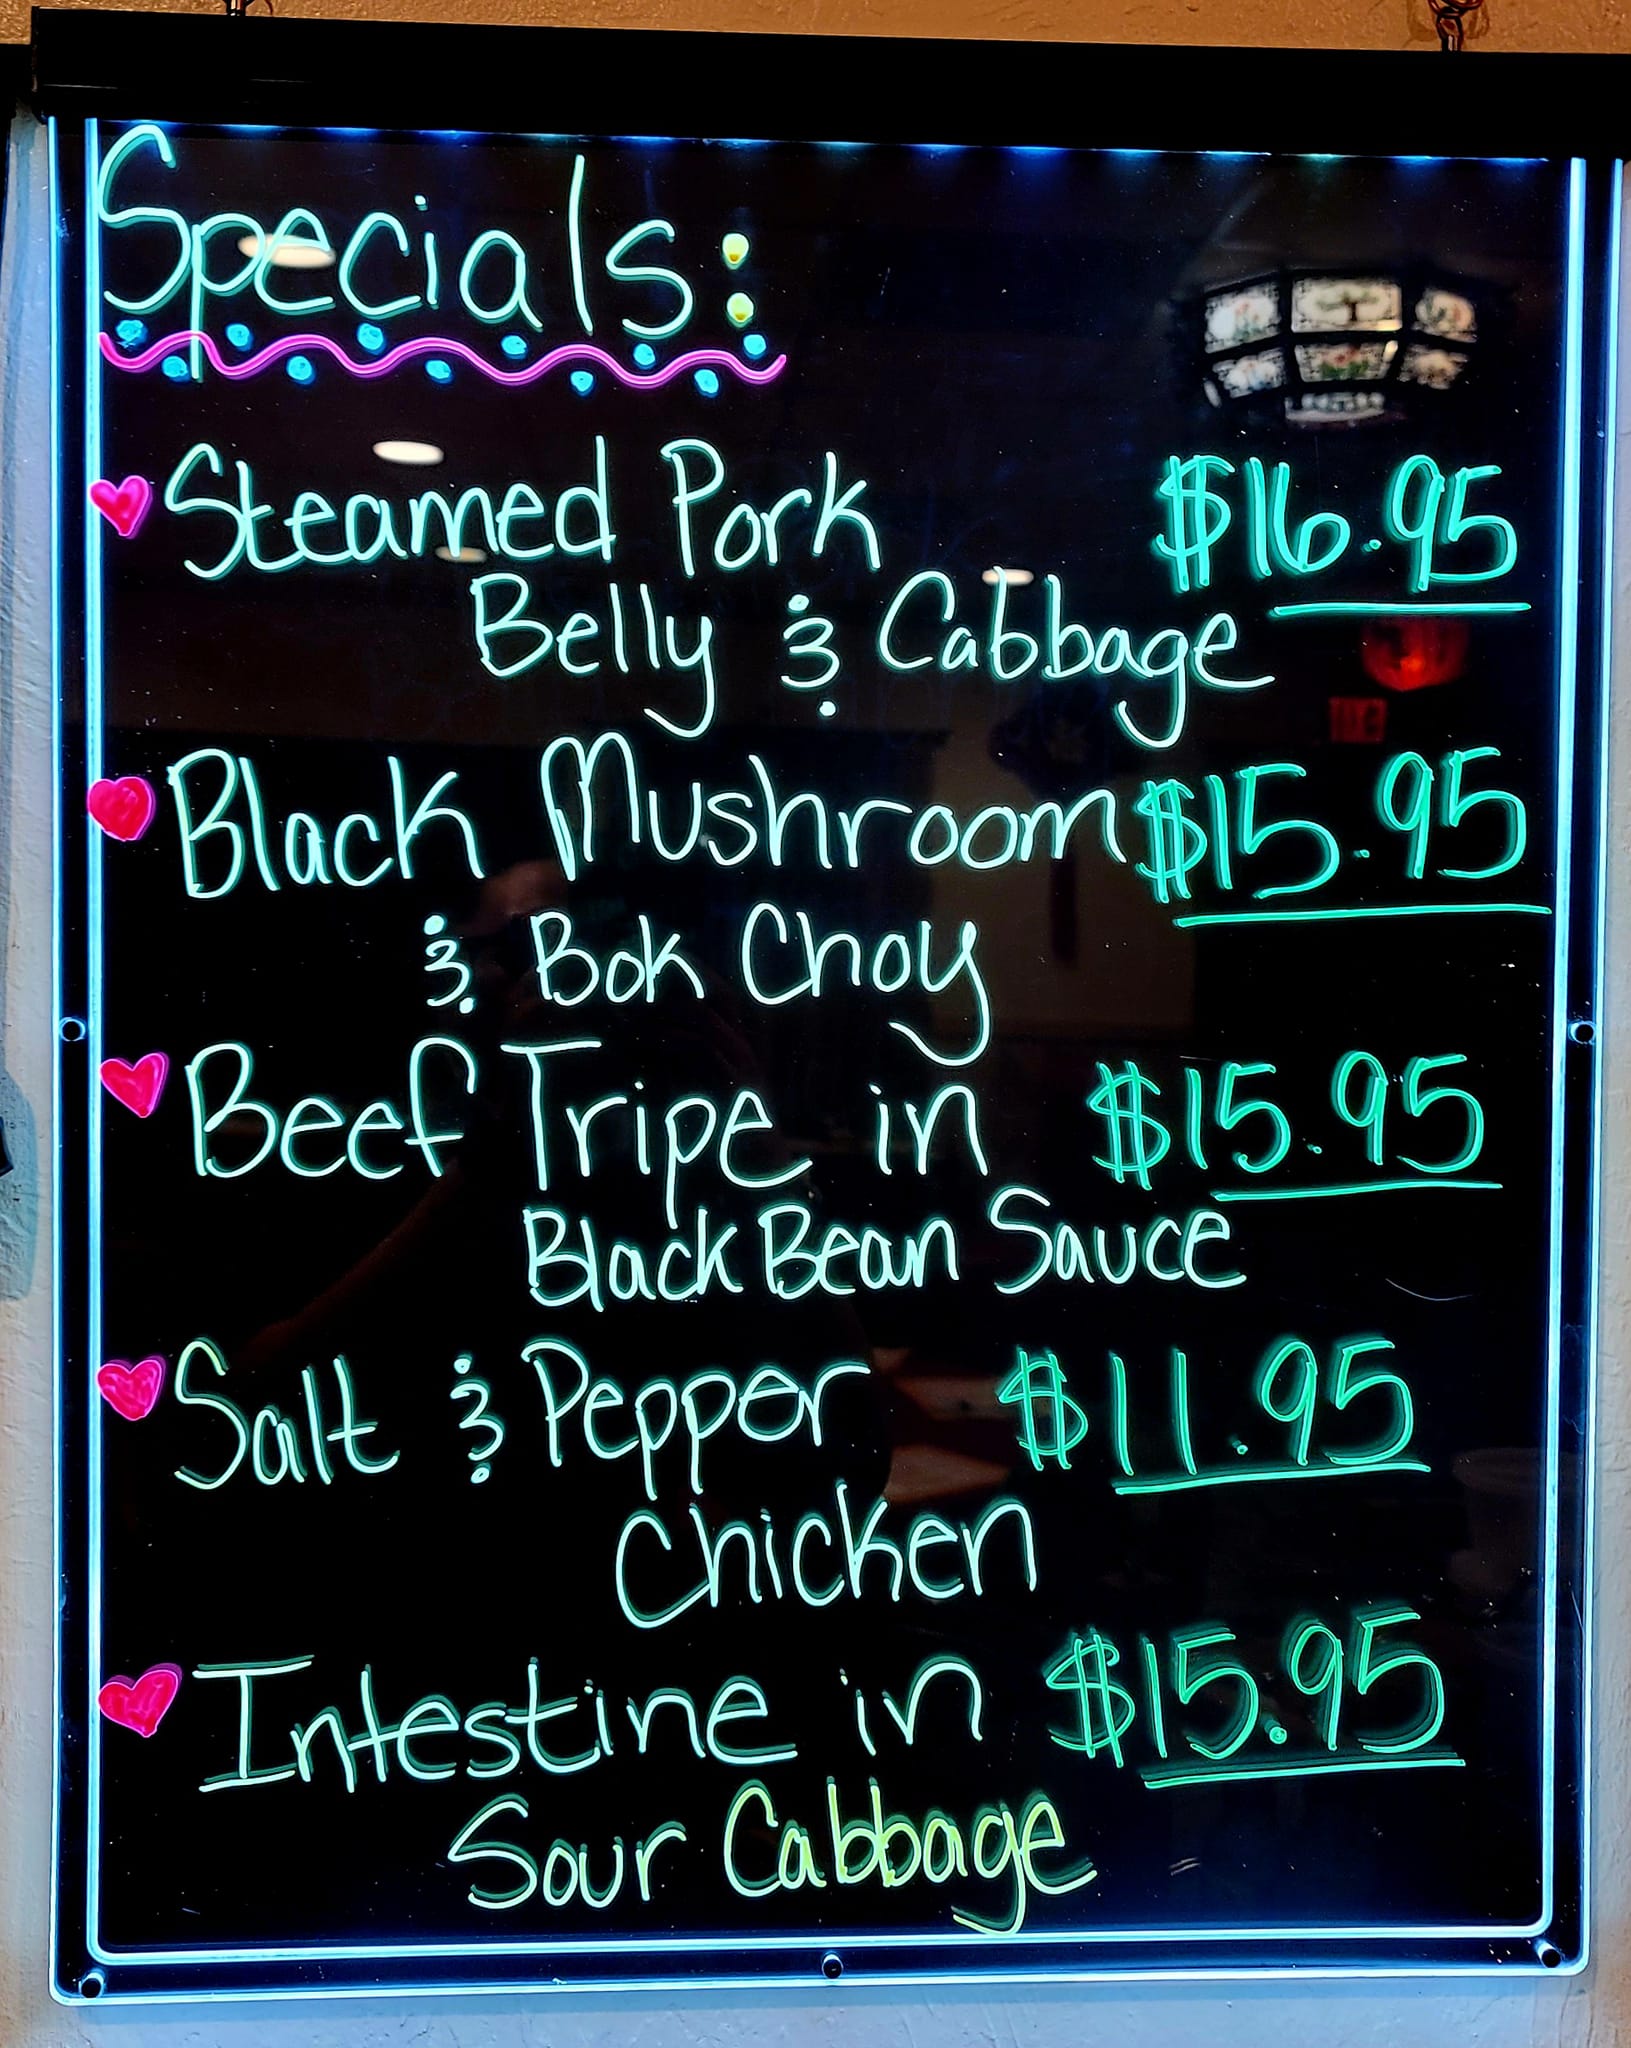 Specials:
Steamed Pork $16.95
Belly & Cabbage
Black Mushroom $15.95
& Bok Choy
Beef Tripe in $15.95
Black Bean Sauce
Salt & Pepper $11.95
Chicken
Intestine in $15.95
Sour Cabbage